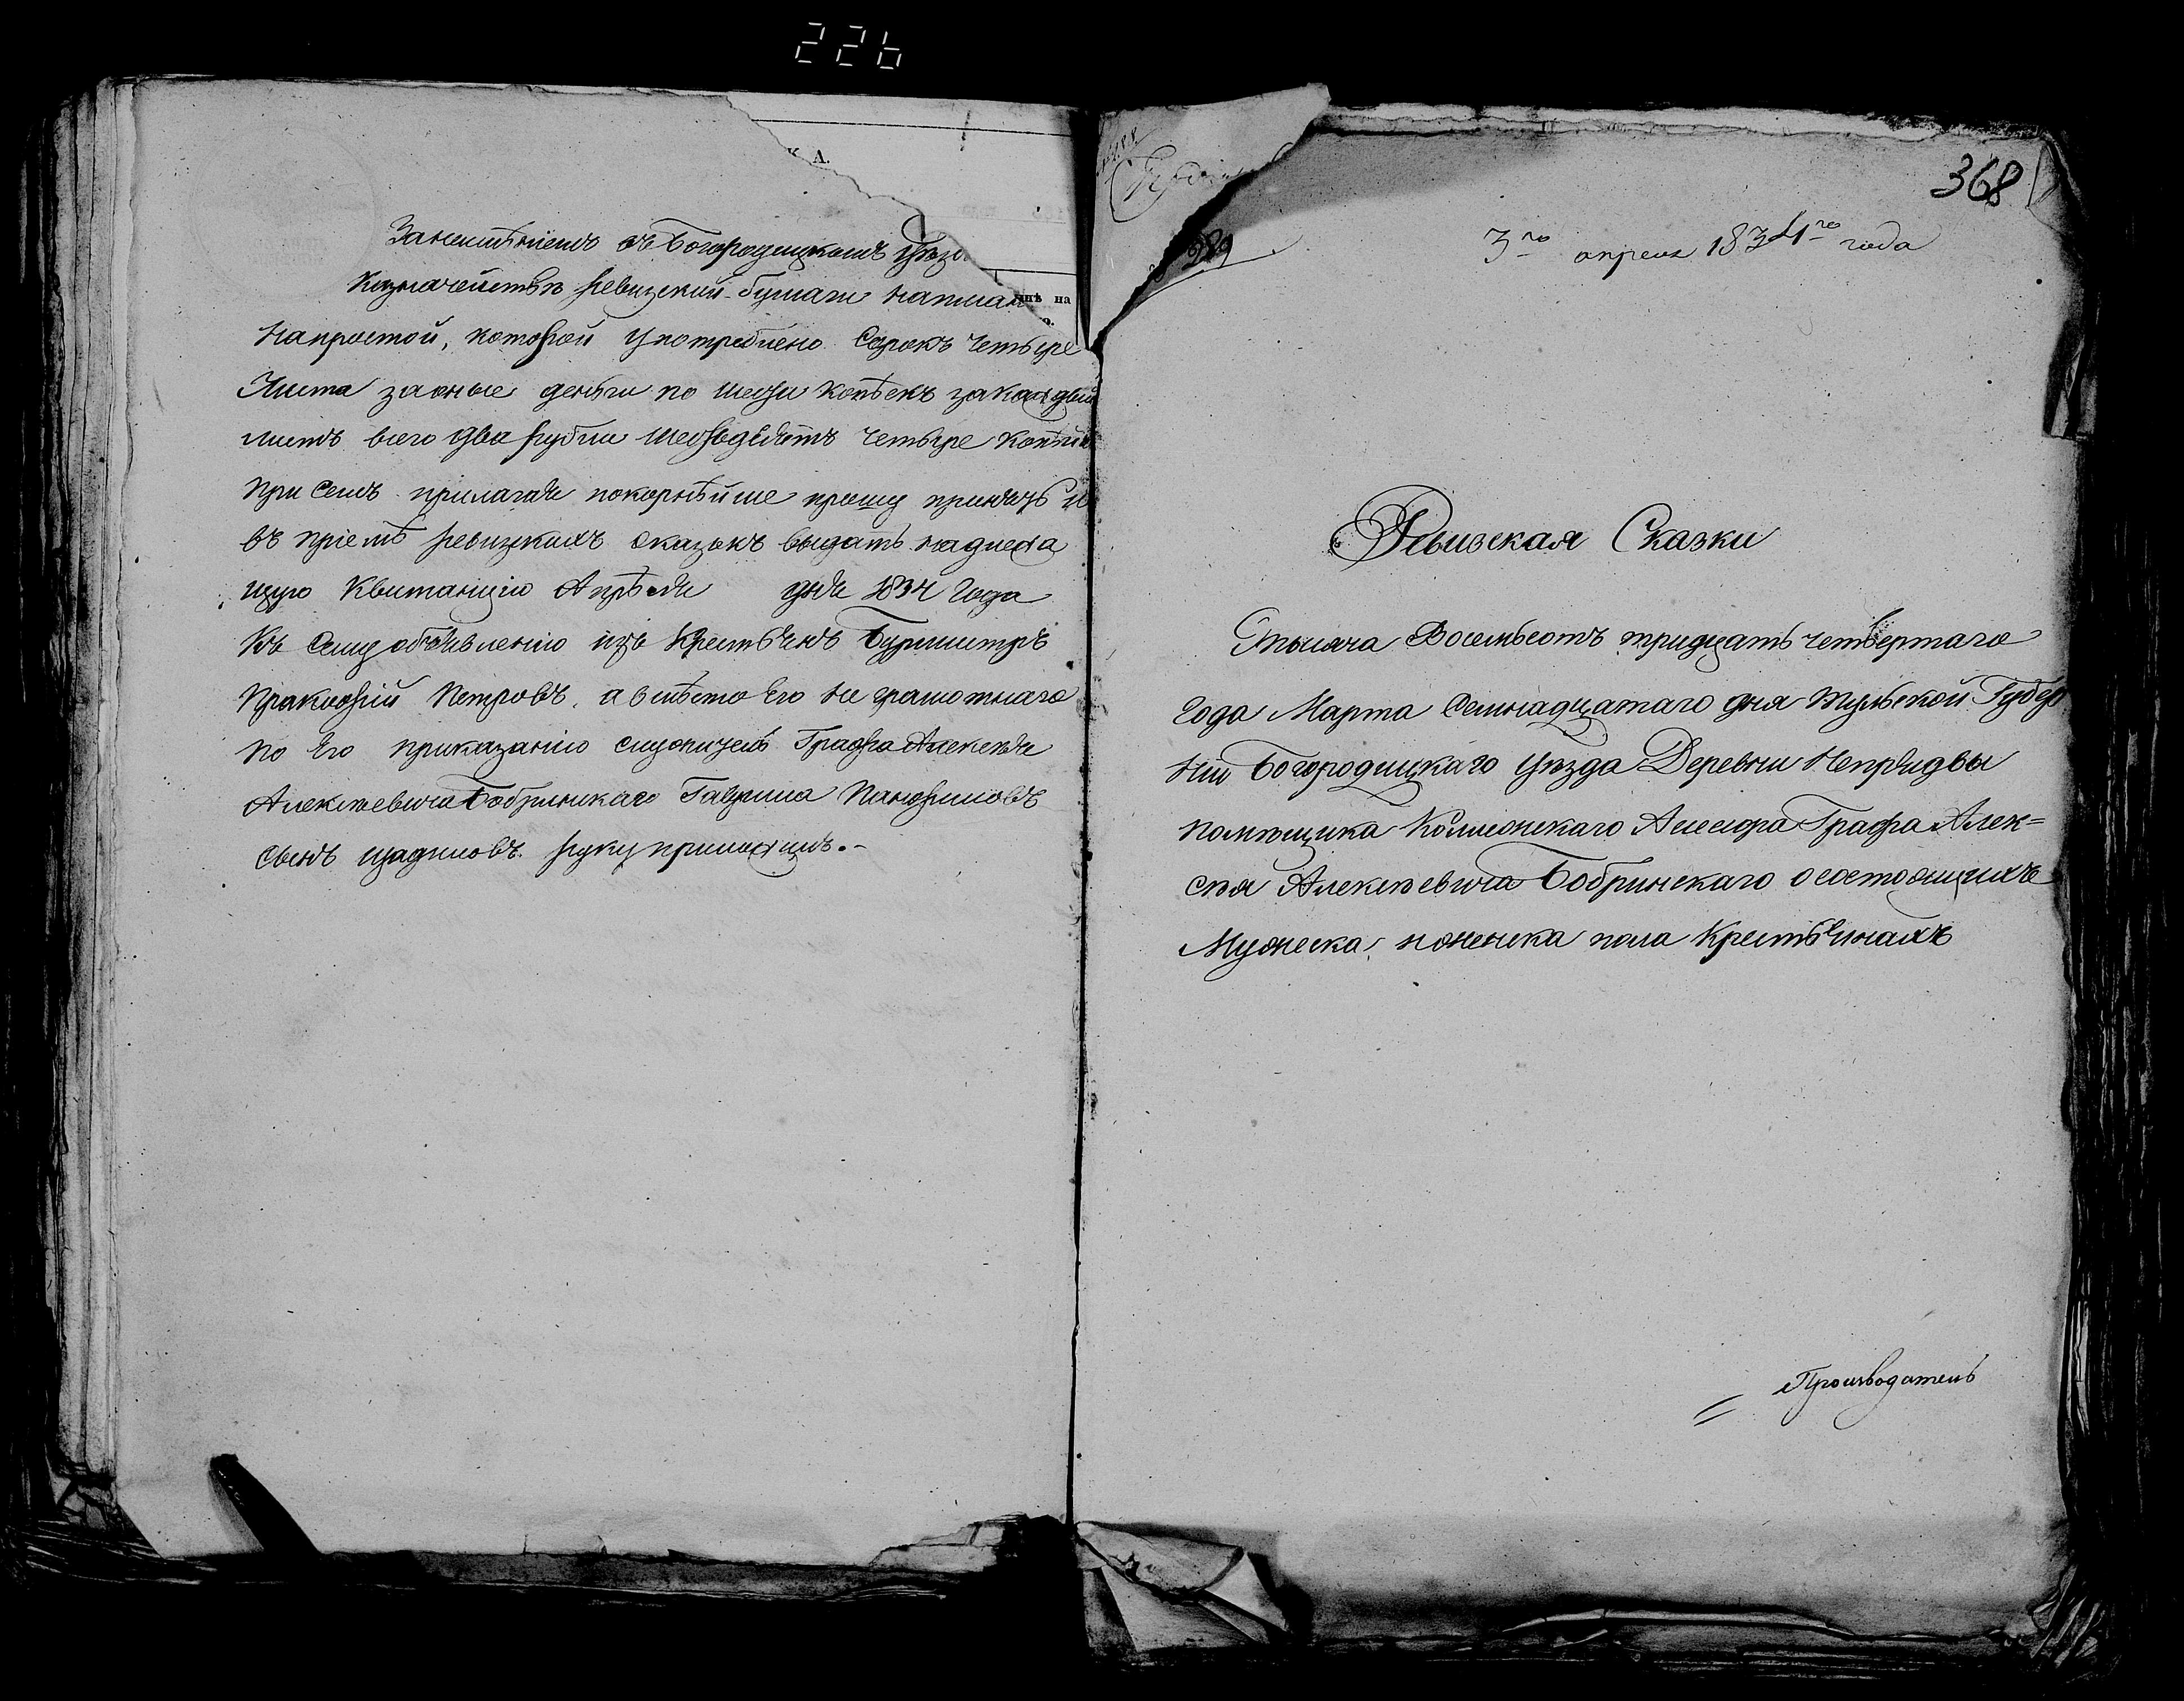 226
К А.
Занеимѣниемъ въ Богородицкомъ уѣзд
Казначействѣ ревизской бумаги написан
инѣ на
напростой, которой употреблено Сорокъ четыре
Листа заоные деньги по шести копѣекъ закаждый
листъ всего два рубли шесдедѣятъ четыре копѣй
При семъ прилагая покорнѣйше прошу принять и
въ приемѣ ревизкихъ сказокъ выдать надлежа
щую Квитанцію Апрѣля дня 1834 Года
Къ сему объявлению изъ Крестьянъ Бурмистръ
Пракофій Петровъ, а вмѣсто Его не грамотнаго
по Его приказанию служитель Графа Алексѣя
Алексѣевича Бобринскаго Гаврила Панфиловъ
сынъ руку приложилъ.-
368
389
3го апреля 1834го года
Ревизская Сказки
Тысяча Восемьсотъ тридцать четвертаго
Года Марта Семнадцатаго дня Тульской Губер
нии Богородицкаго уѣзда Деревни Непрядвы
помѣщика Коллежскаго Асессора Графа Алек=
сѣя Алексѣевича Бобринскаго о состоящихъ
Мужеска, и женска пола Крестьянахъ
Производитель